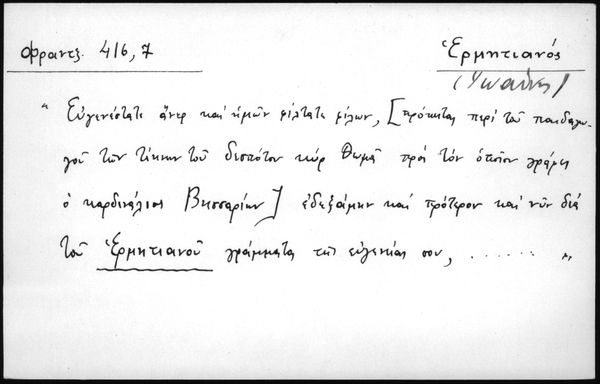 Φραντζ. 416,7
Ἑρμητιανός
(Ἰωάννης)
" Εὐγενέστατε ἄνερ καὶ ἡμῶν φίλτατε φίλων, [πρόκειται περὶ τοῦ παιδαγω-
γοῦ τῶν τέκνων τοῦ δεσπότου κὺρ Θωμᾶ πρὸς τὸν ὁποῖον γράφει
ὁ καρδινάλιος Βησσαρίων] ἐδεξάμην καὶ πρότερον καὶ νῦν διὰ
τοῦ Ἑρμητιανοῦ γράμματα τῆς εὐγενείας σου, ...... "